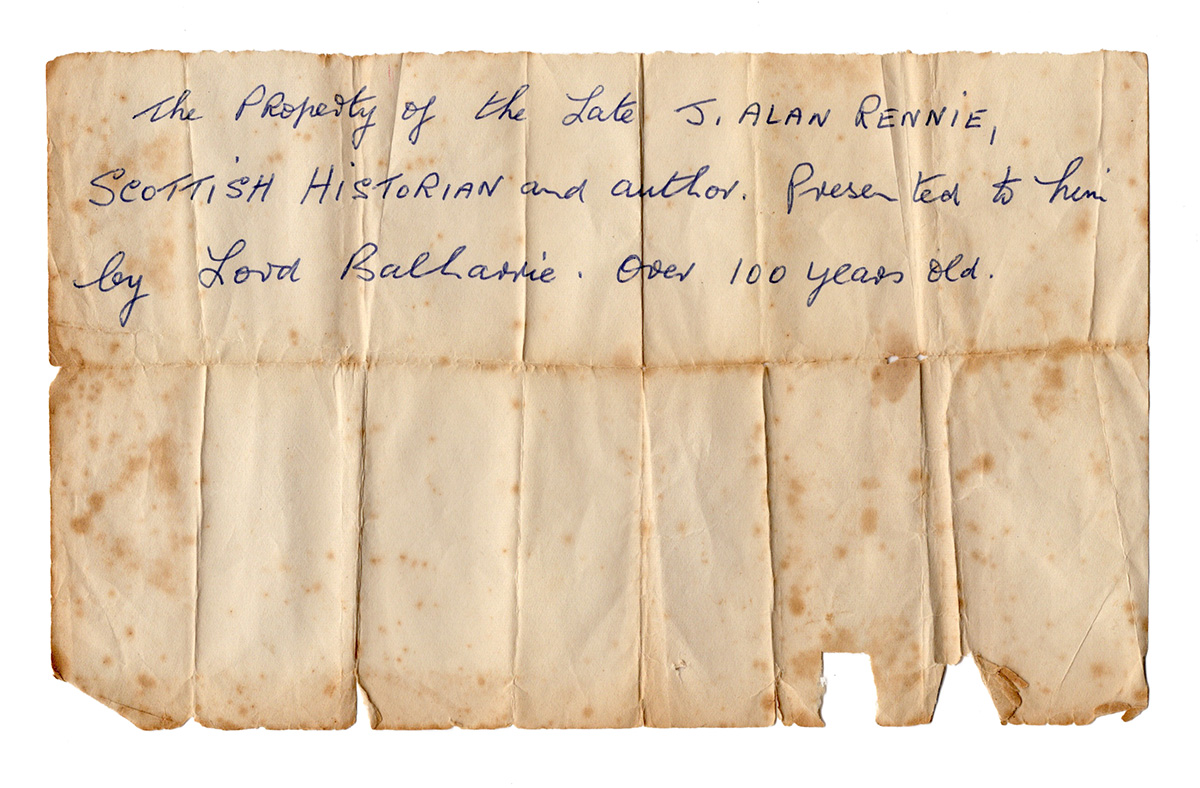 The PRoperty of the Late J. ALAN RENNIE,
SCOTTiSH HiSTORIAN and author. Presented to him
by Lord Balharrie. Over 100 years old.